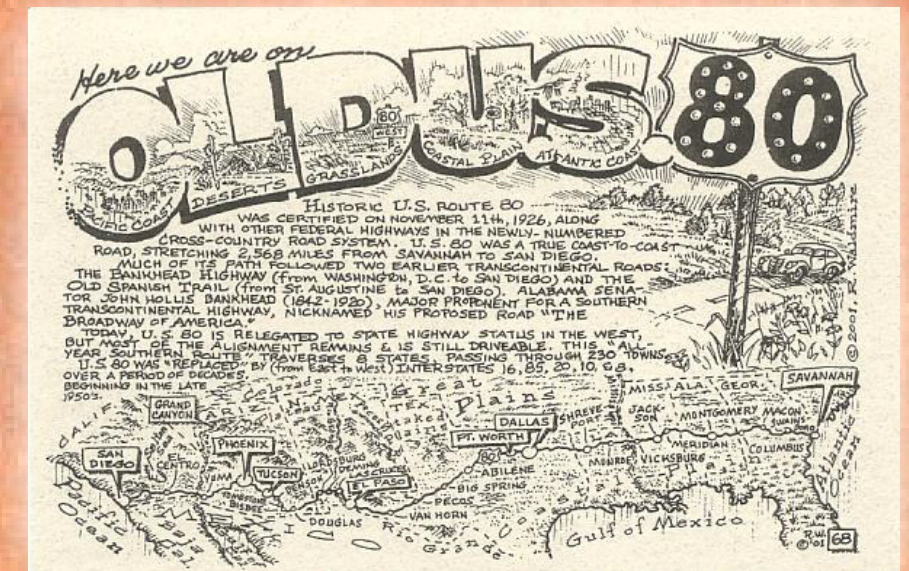 Here we are on
OLD U.S. 80
80
WEST
PACIFIC COAST
DESERTS
GRASSLANDS
COASTAL PLAIN
ATLANTIC COAST
HISTORIC U.S. ROUTE 80
WAS CERTIFIED ON NOVEMBER 11th, 1926, ALONG
WITH OTHER FEDERAL HIGHWAYS IN THE NEWLY-NUMBERED
CROSS-COUNTRY ROAD SYSTEM. U.S. 80 WAS A TRUE COAST-TO-COAST
ROAD, STRETCHING 2,568 MILES FROM SAVANNAH TO SAN DIEGO.
MUCH OF ITS PATH FOLLOWED TWO EARLIER TRANSCONTINENTAL ROADS:
THE BANKHEAD HIGHWAY (from WASHINGTON, D.C. to SAN DIEGO) AND THE
OLD SPANISH TRAIL (from ST. AUGUSTINE to SAN DIEGO). ALABAMA SENA-
TOR JOHN HOLLIS BANKHEAD (1842-1920), MAJOR PROPONENT FOR A SOUTHERN
TRANSCONTINENTAL HIGHWAY, NICKNAMED HIS PROPOSED ROAD "THE
BROADWAY OF AMERICA."
TODAY, U.S. 80 IS RELEGATED TO STATE HIGHWAY STATUS IN THE WEST,
BUT MOST OF THE ALIGNMENT REMAINS & IS STILL DRIVEABLE. THIS "ALL-
YEAR SOUTHERN ROUTE" TRAVERSES 8 STATES, PASSING THROUGH 230 TOWNS.
U.S. 80 WAS "REPLACED" BY (from East to West) INTERSTATES 16, 85, 20, 10, & 8,
OVER A PERIOD OF DECADES,
BEGINNING IN THE LATE
1950's.
© 2001, R. Waldmire
CALIF.
GRAND
CANYON
ARIZ.
Colorado
Great
Plains
TEX.
Staked
Plains
MISS.
ALA.
GEOR.
SAVANNAH
SAN
DIEGO
EL
CENTRO
YUMA
PHOENIX
TUCSON
BENSON
TOMBSTONE
BISBEE
DOUGLAS
LORDSBURG
DEMING
LAS CRUCES
EL PASO
VAN HORN
PECOS
BIG SPRING
ABILENE
80
FT. WORTH
DALLAS
SHREVE-
PORT
MONROE
VICKSBURG
JACK-
SON
MERIDIAN
MONTGOMERY
COLUMBUS
MACON
SWAINSBORO
Atlantic
Ocean
Pacific
Ocean
Baja
Cal.
Rio Grande
Coastal
Plain
Gulf of Mexico
R.W.
© '01
68